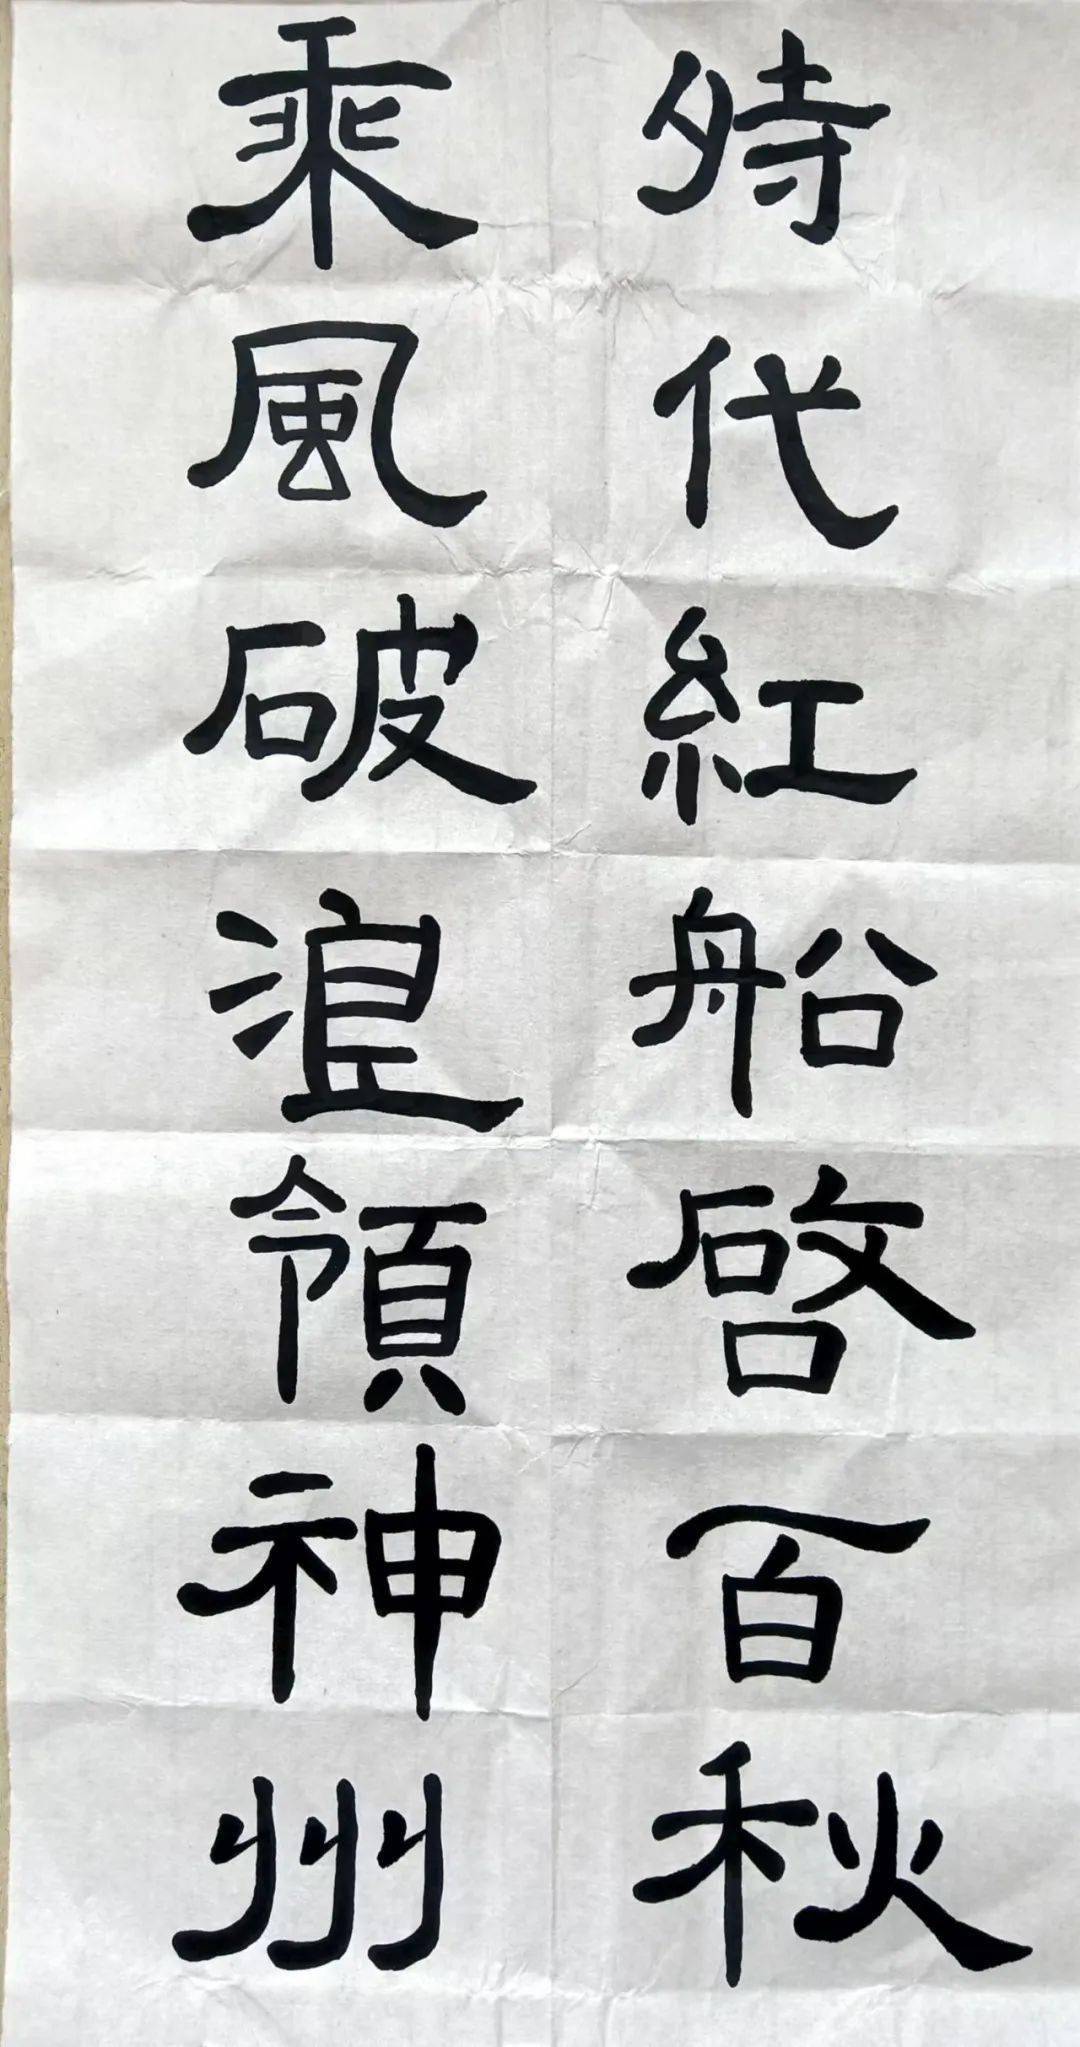 時代紅船啓百秋
乘風破浪領神州